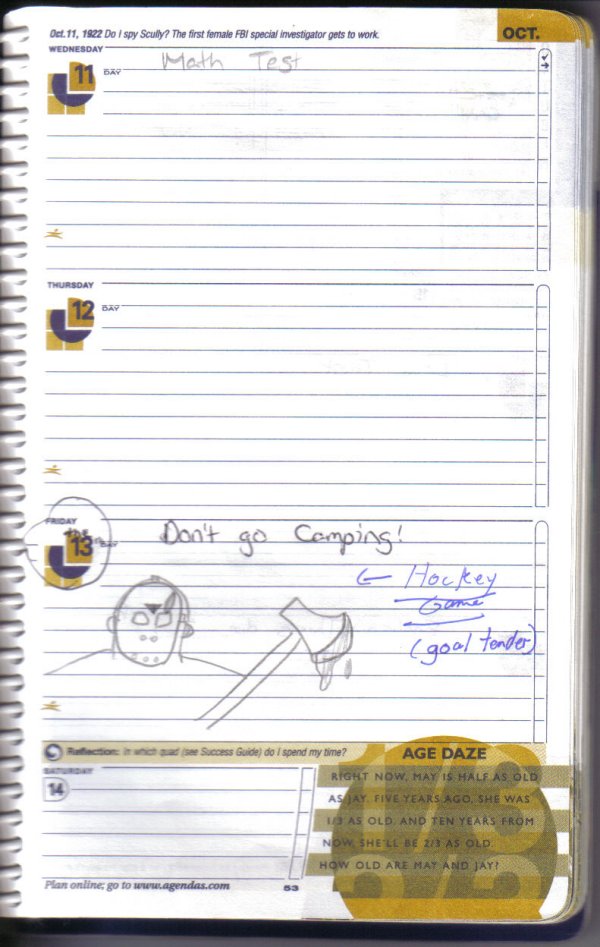 Oct. 11, 1922 Do I spy Scully? The first female FBI special investigator gets to work.
OCT.
WEDNESDAY
11 DAY
Math Test
THURSDAY
12 DAY
FRIDAY
the
13 DAY
Don't go Camping!
← Hockey
Game
(goal tender)
Reflection: In which quad (see Success Guide) do I spend my time?
SATURDAY
14
AGE DAZE
RIGHT NOW, MAY IS HALF AS OLD
AS JAY. FIVE YEARS AGO, SHE WAS
1/3 AS OLD. AND TEN YEARS FROM
NOW, SHE'LL BE 2/3 AS OLD.
HOW OLD ARE MAY AND JAY?
Plan online; go to www.agendas.com
53